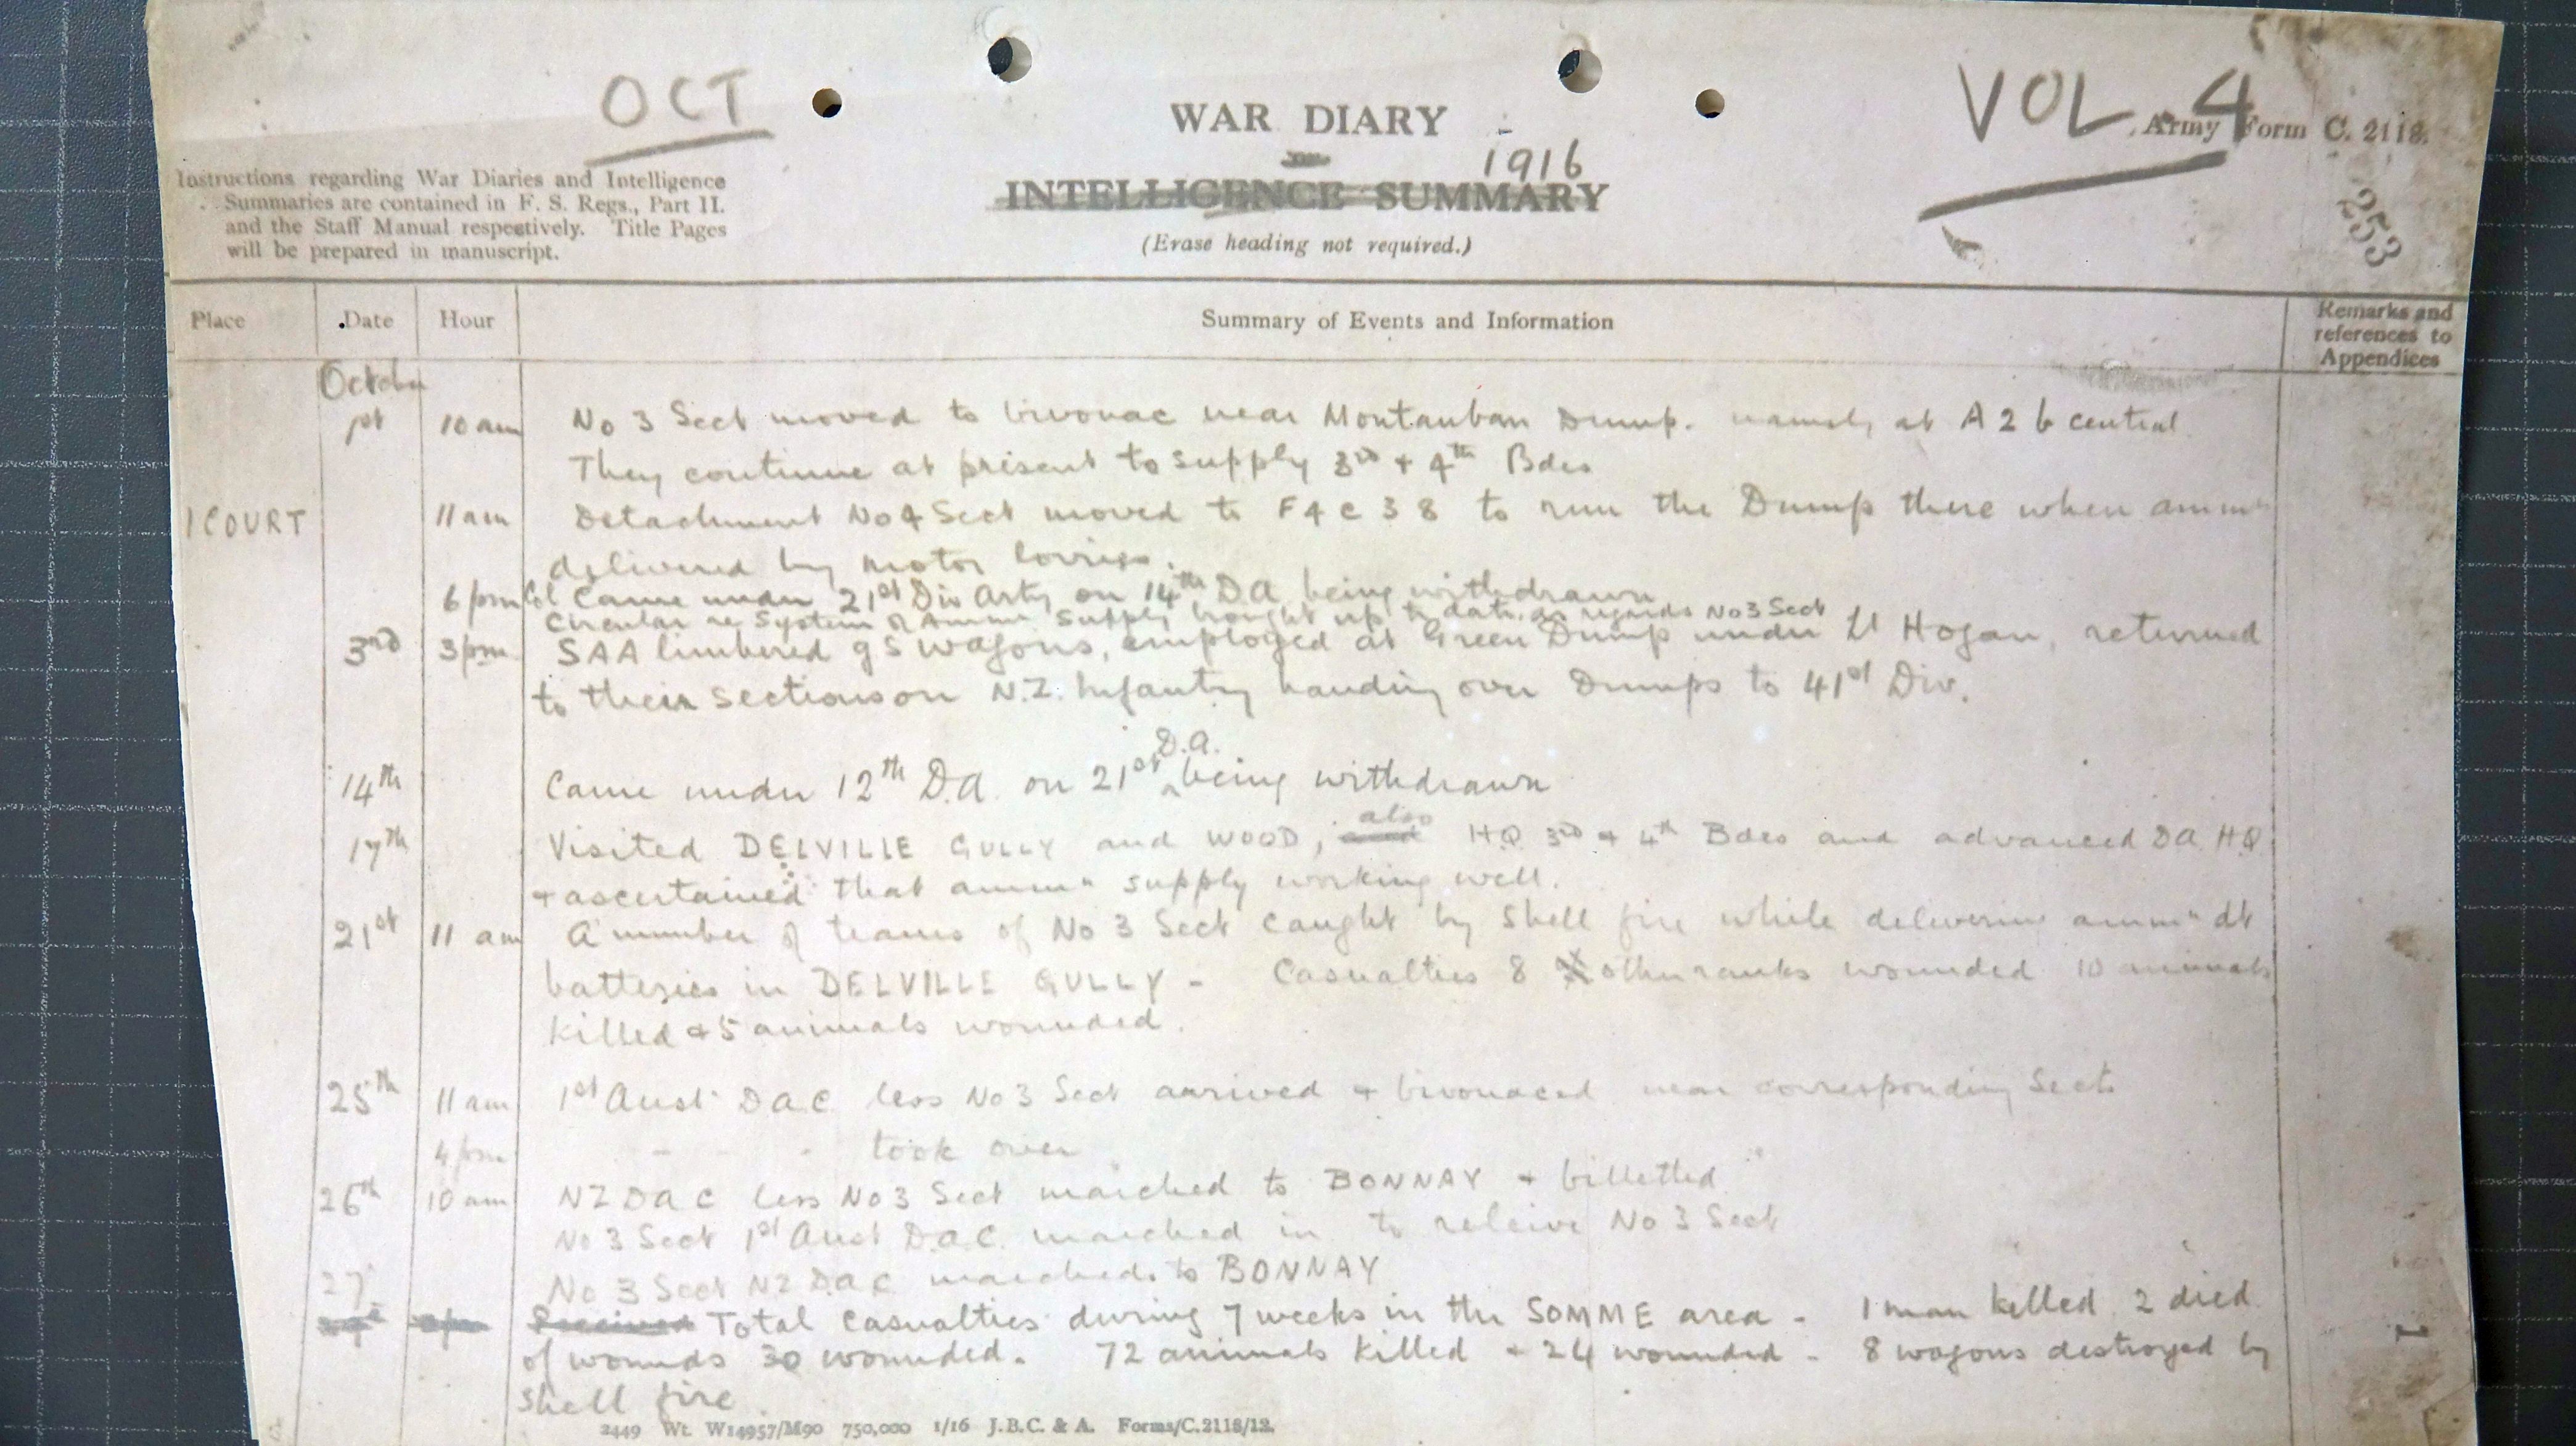 OCT
VOL. 4
WAR DIARY
Army Form C. 2118.
or
1916
INTELLIGENCE SUMMARY
(Erase heading not required.)
253
Instructions regarding War Diaries and Intelligence
Summaries are contained in F. S. Regs., Part II.
and the Staff Manual respectively. Title Pages
will be prepared in manuscript.
Place Date Hour Summary of Events and Information Remarks and references to Appendices
October
1st 10 am No 3 Sect moved to bivouac near Montauban Dump. namely at A 2 b central
They continue at present to supply 3rd + 4th Bdes
COURT 11 am Detachment No 4 Sect moved to F 4 c 3 8 to run the Dump there when ammn
delivered by motor lorries.
6 pm Col Came under 21st Div Arty on 14th DA being withdrawn
Circular re System of Ammn Supply brought up to date as regards No 3 Sect
3rd 3 pm SAA limbered G S wagons, employed at Green Dump under Lt Hogan, returned
to their sections on N.Z. Infantry handing over Dumps to 41st Div.
14th Came under 12th D.A. on 21st D.A. being withdrawn
17th Visited DELVILLE GULLY and WOOD, also HQ 3rd + 4th Bdes and advanced DA. HQ
+ ascertained that ammn supply working well.
21st 11 am A number of teams of No 3 Sect caught by shell fire while delivering ammn at
batteries in DELVILLE GULLY - Casualties 8 other ranks wounded 10 animals
killed + 5 animals wounded.
25th 11 am 1st Aust DAC less No 3 Sect arrived + bivouaced near corresponding Sects
4 pm - - - took over
26th 10 am NZDAC less No 3 Sect marched to BONNAY + billetted
No 3 Sect 1st Aust D.A.C. marched in to releive No 3 Sect
27 No 3 Sect NZDAC marched to BONNAY
Received Total Casualties during 7 weeks in the SOMME area - 1 man killed 2 died
of wounds 30 wounded. 72 animals killed + 24 wounded - 8 wagons destroyed by
shell fire
2449 Wt. W14957/M90 750,000 1/16 J.B.C. & A. Forms/C.2118/12.